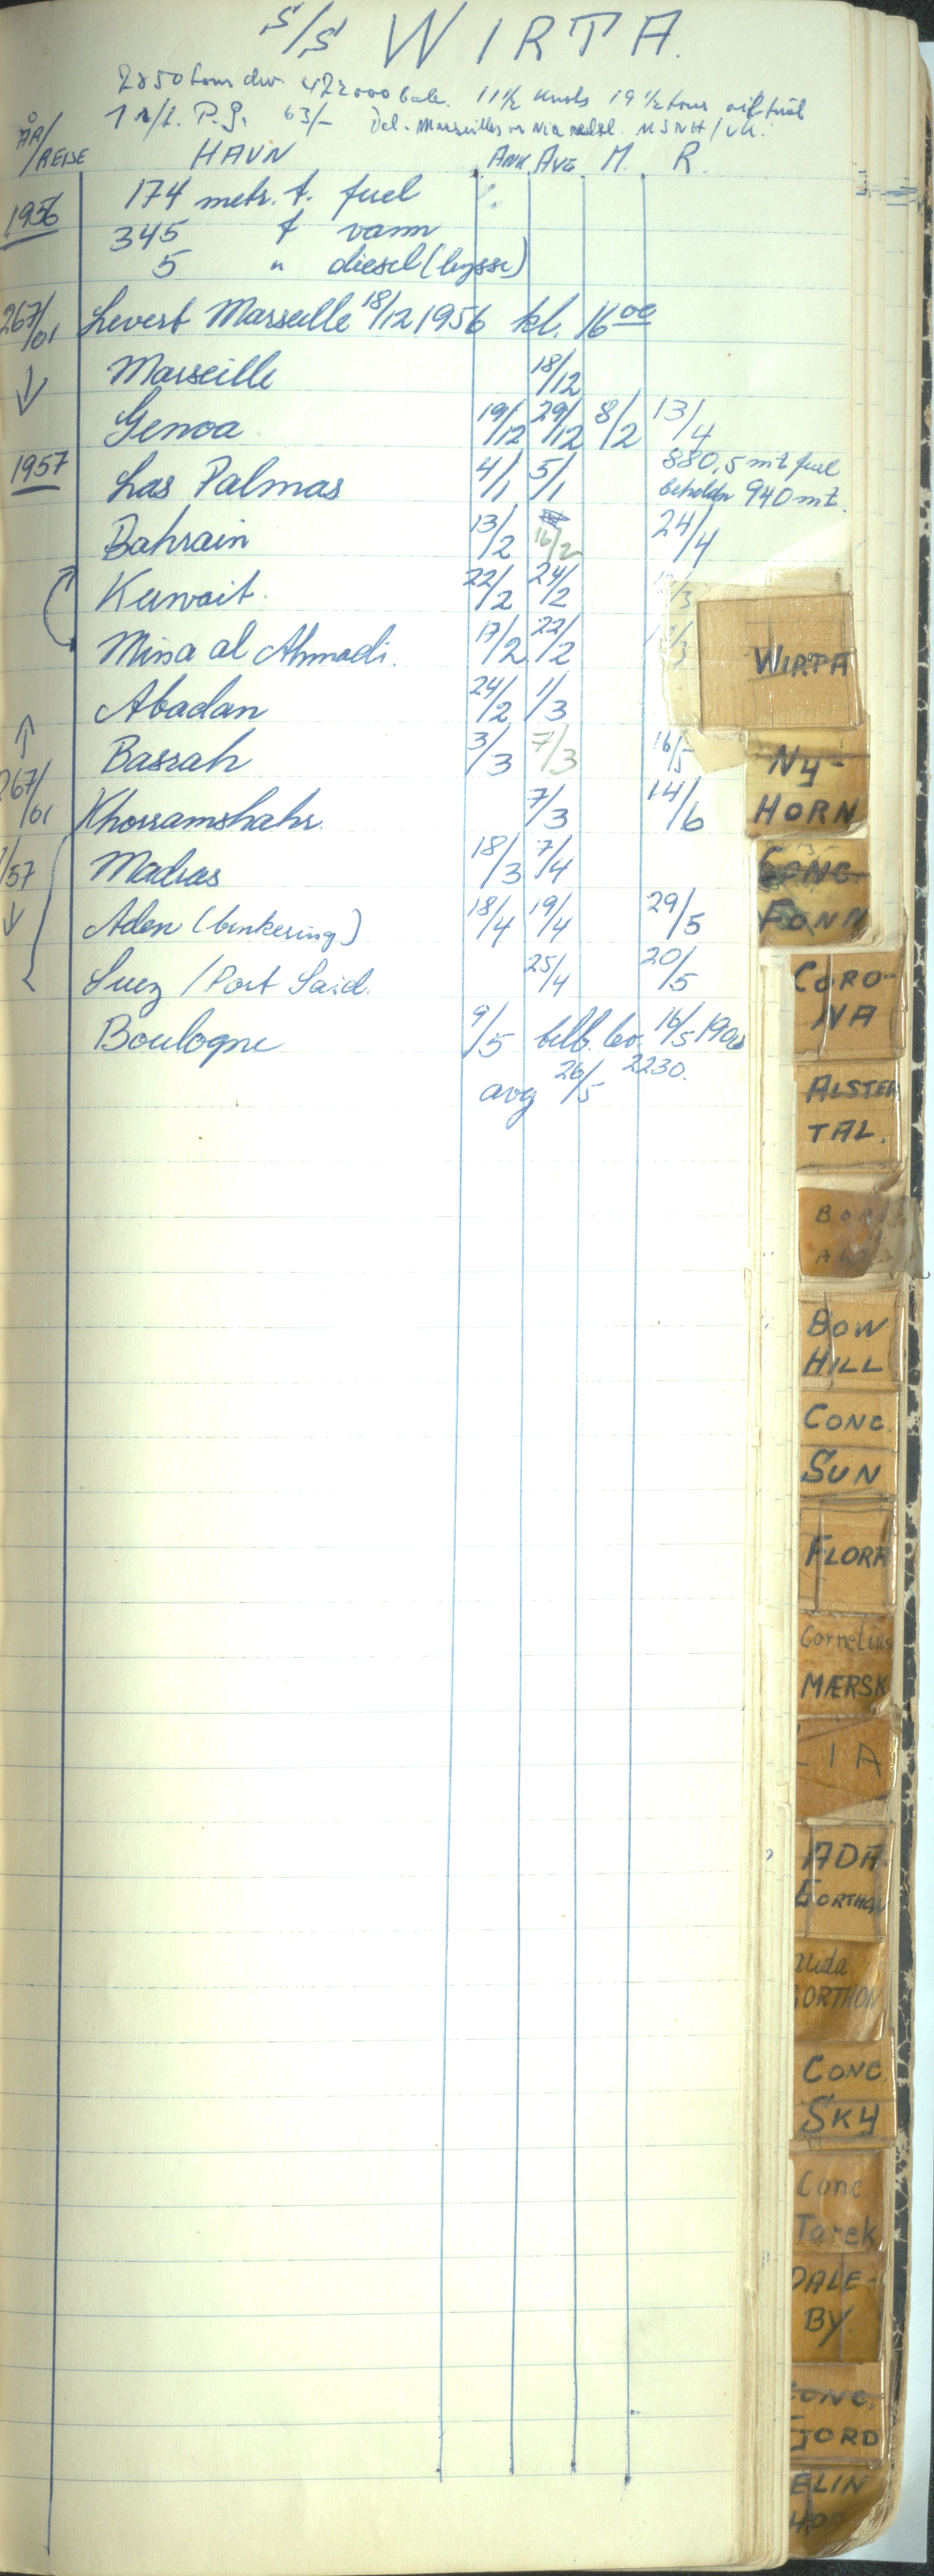 S/S WIRTA.
422000 bale. 11½ knots 19½ tons oil fuel
1 r/t. P.G. 63/- Del. Marseilles
ÅR/REISE HAVN ANK. AVG. M. R.
1956 174 metr. t. fuel
345 t vann
5 " diesel (bysse)
267/01 Levert Marseille 18/12 1956 kl. 16⁰⁰
↓ Marseille 18/12
Genoa 19/12 29/12 8/2 13/4
1957 Las Palmas 4/1 5/1 880,5 mt fuel
beholdn 940 mt.
Bahrain 13/2 16/2 24/4
Kuwait. 22/2 24/2
Mina al Ahmadi. 17/2 22/2
Abadan 24/2 1/3
↑ Basrah 3/3 7/3 16/5
267/01 Khorramshahr. 7/3 14/6
/57 Madras 18/3 7/4
↓ Aden (bunkering) 18/4 19/4 29/5
Suez / Port Said. 25/4 20/5
Boulogne 9/5 tilb. lev. 16/5 1900
avg 26/5 2230.
WIRTA
NY-
HORN
CONC.
FONN
CORO-
NA
ALSTER
TAL.
BOW
HILL
CONC.
SUN
FLORA
Cornelius
MÆRSK
LIA
ADA
GORTHON
GORTHON
CONC.
SKY
Conc.
Tarek
DALE-
BY.
CONC.
FJORD
ELIN